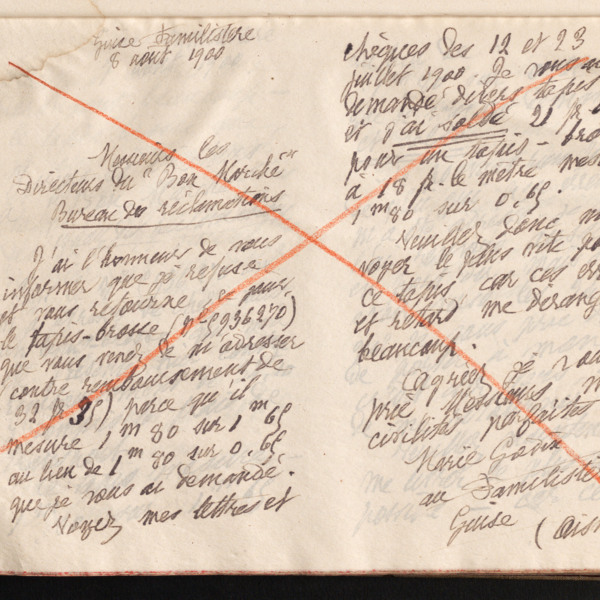 Guise Familistère
8 août 1900
Messieurs les
Directeurs du "Bon Marché"
Bureau des réclamations
J'ai l'honneur de vous
informer que je refuse
et vous retourne ce jour
le tapis-brosse (n° 936270)
que vous venez de m'adresser
contre remboursement de
32 fr 35) parce qu'il
mesure 1m80 sur 1m65
au lieu de 1m80 sur 0,65
que je vous ai demandé.
Voyez mes lettres et
chèques des 12 et 23
juillet 1900. Je vous
demandé divers tapis
et j'ai soldé 21 fr
pour un tapis-
à 18 fr. le mètre
1m80 sur 0,65.
Veuillez donc
voyer le plus vite
ce tapis car ces
et retard me
beaucoup.
Agréez je
prie Messieurs
civilités parfaites
Marie Godin
au Familistère
Guise